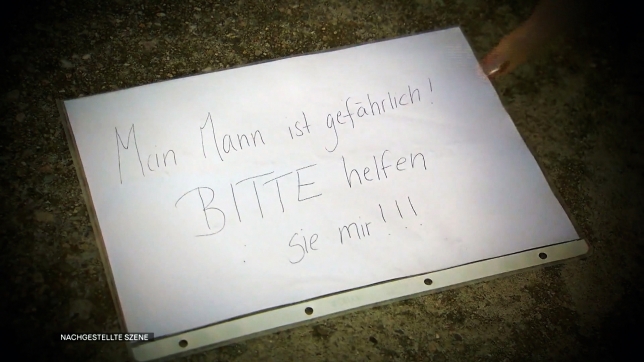 Mein Mann ist gefährlich!
BITTE helfen
Sie mir!!!
NACHGESTELLTE SZENE